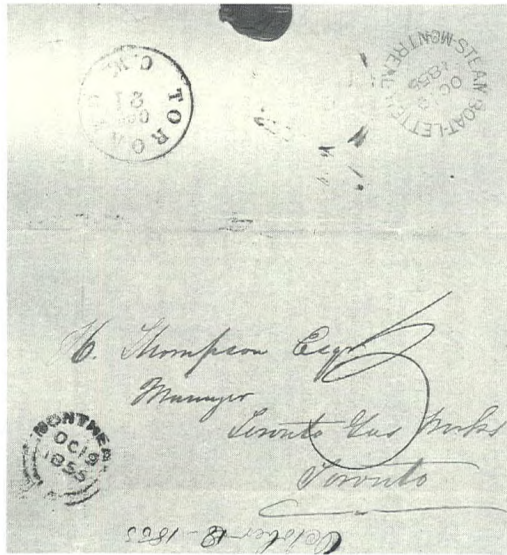 TORONTO
C.W.
OCT
21
STEAM-BOAT-LETTER
MONTREAL
OC
1855
H. Thompson Esqr
5
Manager
Toronto Gas Works
Toronto
MONTREAL
OC 19
1855
October 18 - 1855